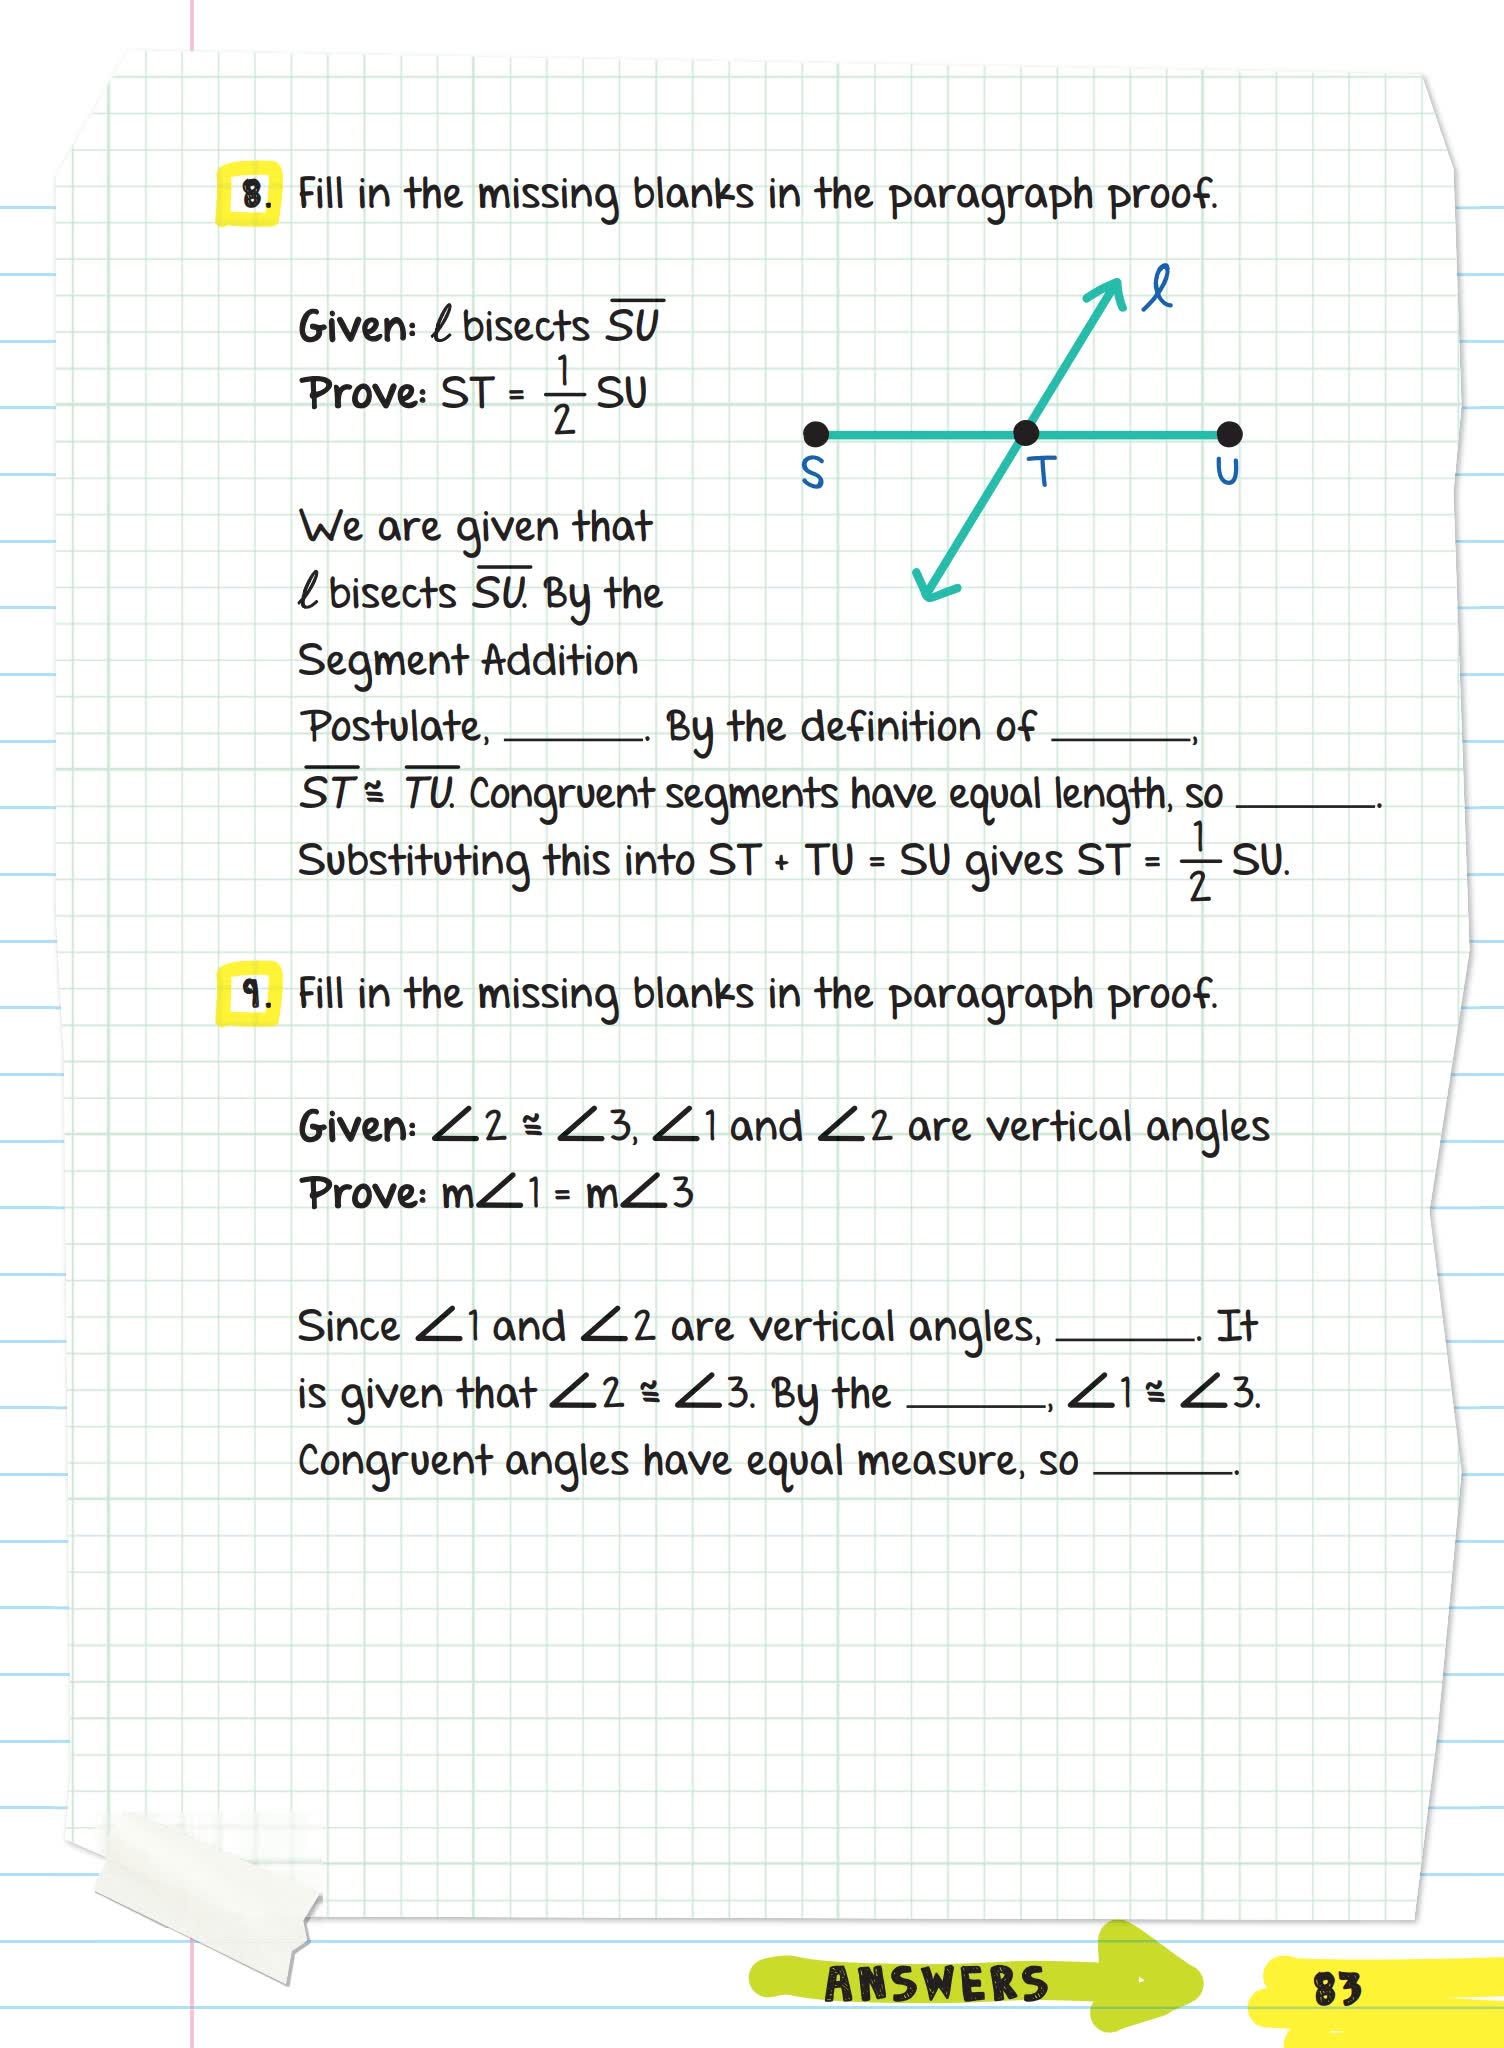 8. Fill in the missing blanks in the paragraph proof.
Given: ℓ bisects S̅U̅
Prove: ST = 1/2 SU
ℓ
S T U
We are given that
ℓ bisects S̅U̅. By the
Segment Addition
Postulate, ________. By the definition of ________,
S̅T̅ ≅ T̅U̅. Congruent segments have equal length, so ________.
Substituting this into ST + TU = SU gives ST = 1/2 SU.
9. Fill in the missing blanks in the paragraph proof.
Given: ∠2 ≅ ∠3, ∠1 and ∠2 are vertical angles
Prove: m∠1 = m∠3
Since ∠1 and ∠2 are vertical angles, ________. It
is given that ∠2 ≅ ∠3. By the ________, ∠1 ≅ ∠3.
Congruent angles have equal measure, so ________.
ANSWERS 83